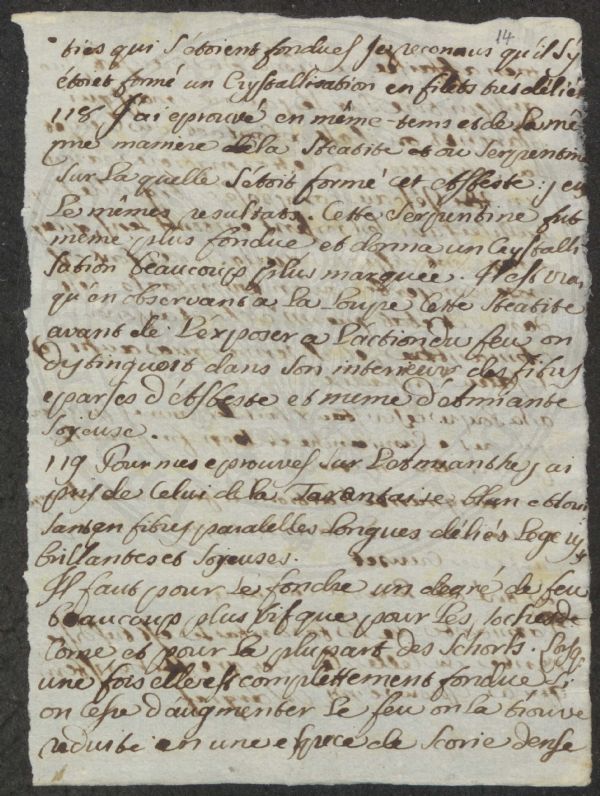 14
ties qui s'étoient fondues je reconnus qu'il s'y
étoit formé un Crystallisation en filets tres déliés
118 J'ai eprouvé en même-tems et de la mê-
me maniere de la Steatite et ou Serpentine
sur la quelle s'étoit formé cet Asbeste: j'eu
le mêmes resultats. Cette Serpentine fut
même plus fondue et donna un Crystalli
sation beaucoup plus marquée. Il est vrai
qu'en observant a la Loupe cette Steatite
avant de l'exposer a l'action du feu on
dystinguoit dans son interieur des fibres
eparses d'Asbeste et meme d'Amiante
soyeuse.
119 Pour mes eprouves sur l'Asmianthe j'ai
pris de celui de la Tarantaise blan et
sant en fibres paralelles longues déliés
brillantes et soyeuses.
Il faut pour le fondre un degré de feu
beaucoup plus vif que pour les roches de
Corne et pour la pluspart des Schorls.
une fois elle est complettement fondue si
on cesse d'augmenter le feu on la trouve
reduite en une espece de scorie dense